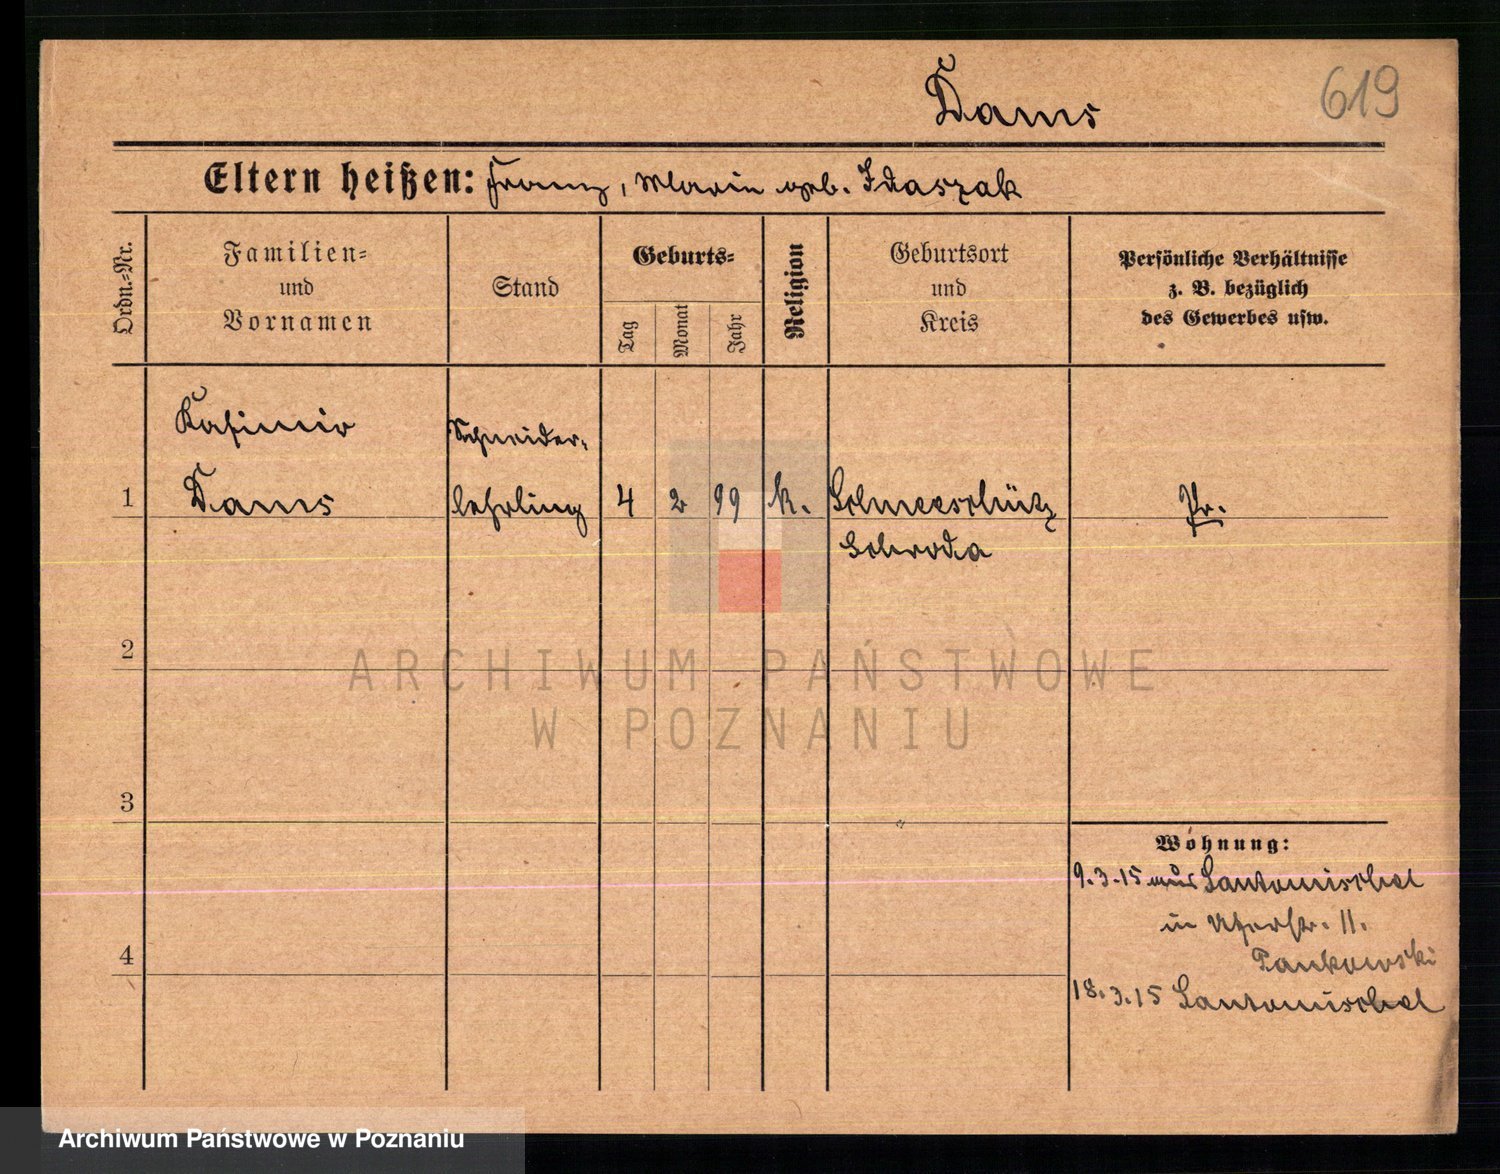 Dams
619
Eltern heißen: Franz, Maria geb. Idaszak
Ordn.-Nr.
Familien-
und
Vornamen
Stand
Geburts-
Tag
Monat
Jahr
Religion
Geburtsort
und
Kreis
Persönliche Verhältnisse
z. B. bezüglich
des Gewerbes usw.
Kasimir
Schneider-
1 Dams lehrling 4 2 99 k. Schneeschütz Pr.
Schroda
2
ARCHIWUM PAŃSTWOWE
W POZNANIU
3
Wohnung:
9.3.15 aus Santomischel
in 11.
4
Pankowski
18.3.15 Santomischel
Archiwum Państwowe w Poznaniu